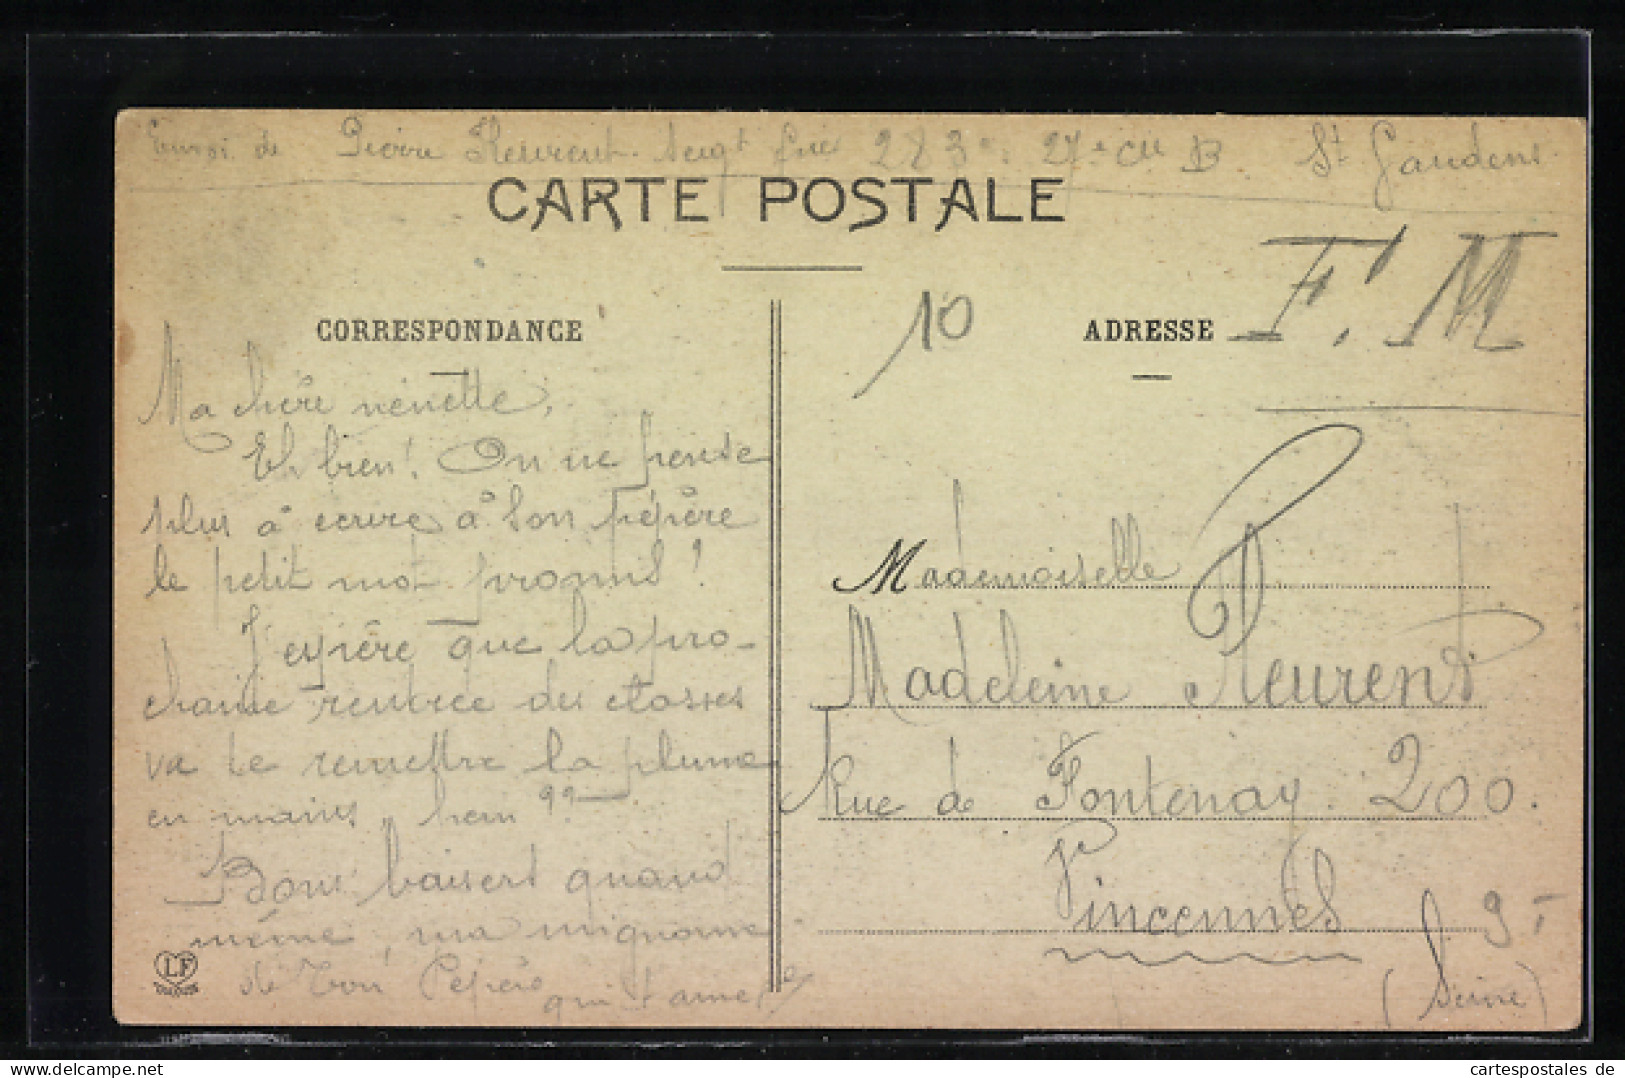 Envoi de Pierre Fleurent Sergt frie 283e 27e Cie B St Gaudens
CARTE POSTALE
10
F. M
CORRESPONDANCE
ADRESSE
Ma chère nénette,
Eh bien! On ne pense
plus à écrire à son pépère
le petit mot promis!
J'espère que la pro-
chaine rentrée des classes
va te remettre la plume
en mains, hein??
Bons baisers quand
même, ma mignonne
de ton Pépère
qui t'aime
Mademoiselle
Madeleine Fleurent
Rue de Fontenay. 200.
Vincennes
(Seine)
LF
cartespostales de